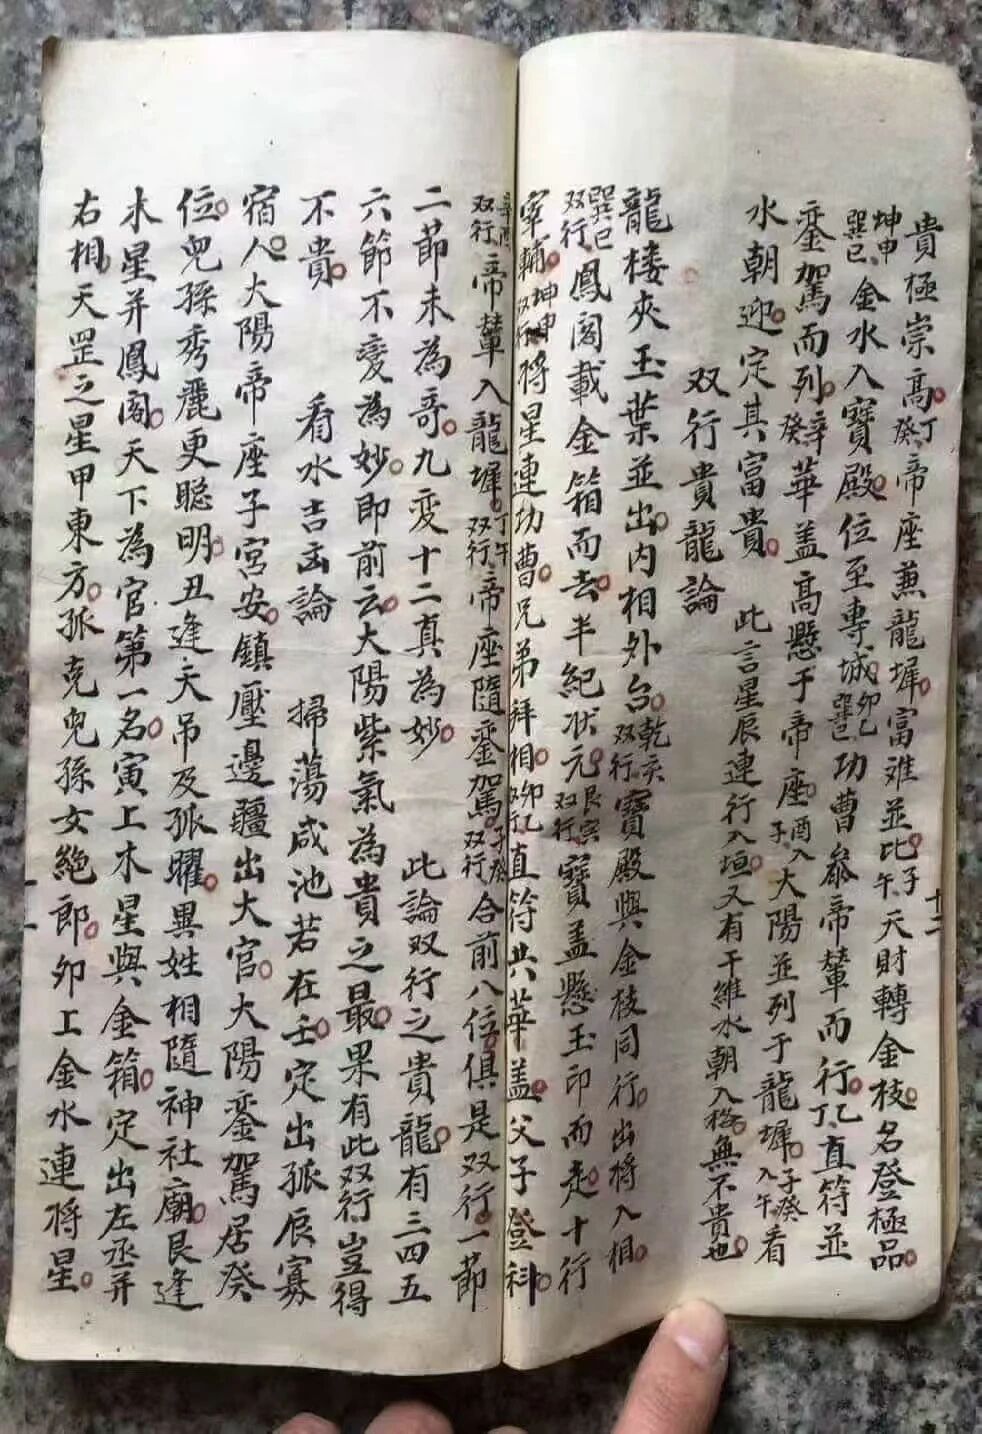 貴極崇高丁癸帝座兼龍墀富难並比子午天財轉金枝名登極品
坤申巽巳金水入寶殿位至専城卯乙巽巳功曹叅帝輦而行丁乙直符並
銮駕而列辛癸華盖髙懸于帝座酉入子大陽並列于龍墀子癸入午看
水朝迎定其富貴 此言星辰連行入垣又有干維水朝入格無不貴也
双行貴龍論
龍楼夾玉葉並出内相外台乾亥双行寶殿與金枝同行出將入相
巽巳双行鳳阁載金箱而去半紀状元艮寅双行寶盖懸玉印而走十行
宰輔坤申双行將星連功曹兄弟拜相卯乙双行直符共華盖父子登科
双行帝輦入龍墀丁午双行帝座隨銮駕子癸双行合前八位俱是双行一節
二節未為竒九变十二真為妙 此論双行之貴龍有三四五
六節不变為妙即前云大陽紫氣為貴之最果有此双行豈得
不貴 看水吉凶論 掃蕩咸池若在壬定出孤辰寡
宿人大陽帝座子宮安鎮壓邊疆出大官大陽銮駕居癸
位兒孫秀麗更聪明丑逢天吊及孤曜異姓相隨神社廟艮逢
木星并鳳阁天下為官第一名寅上木星與金箱定出左丞并
右相天罡之星甲東方孤克兒孫女絶郎卯上金水連將星
十二